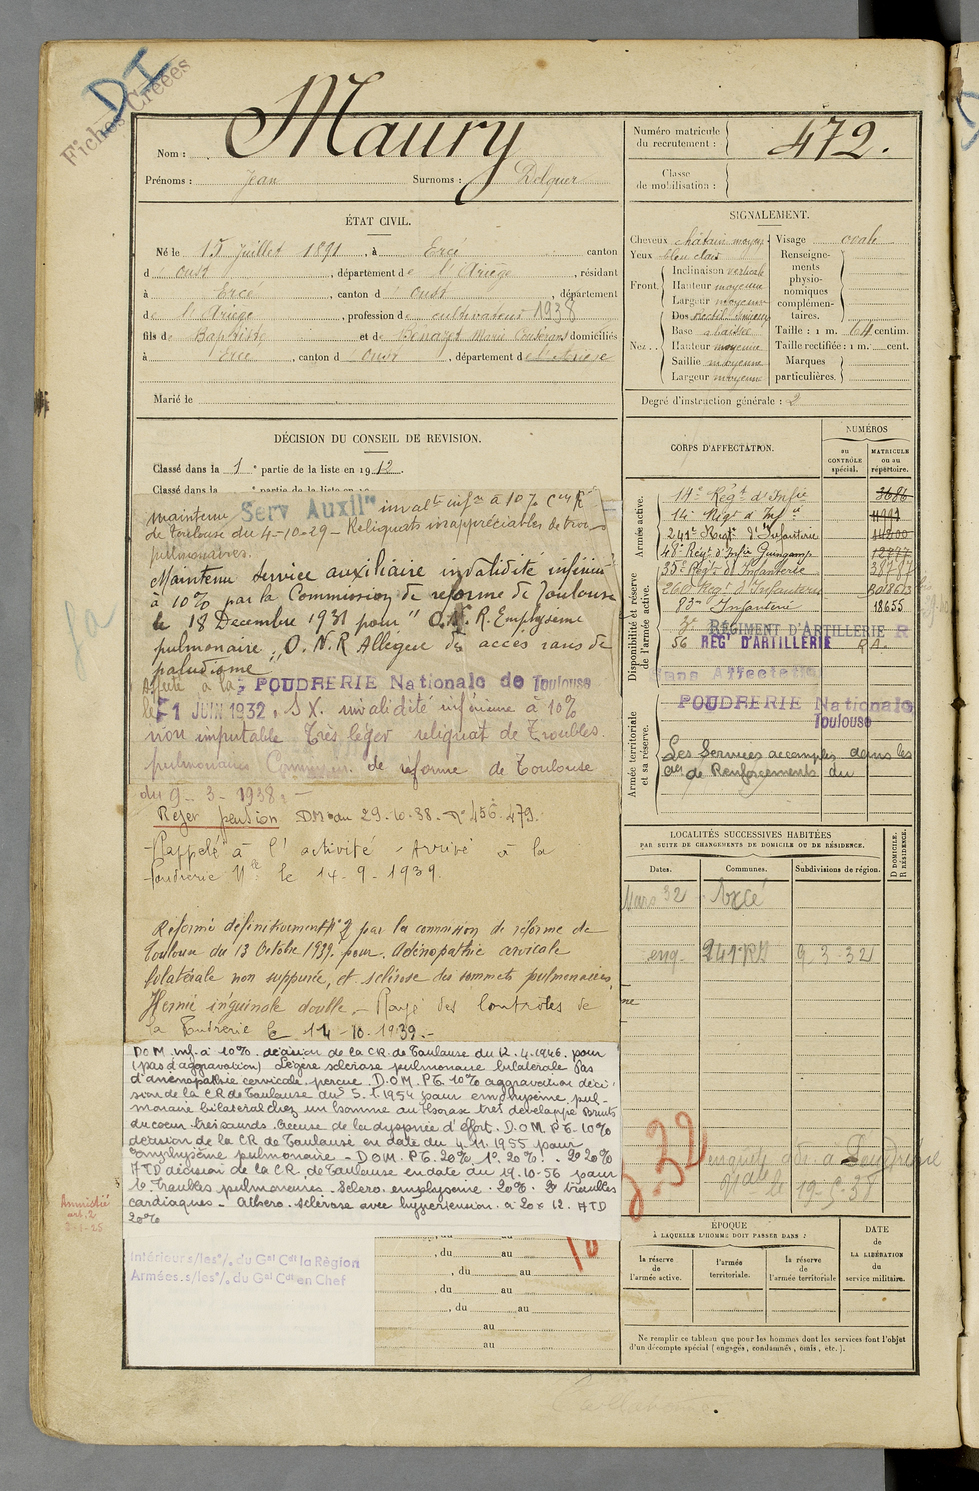 DI
Fiches Créées
Nom : Maury
Prénoms : Jean Surnoms : Delquer
Numéro matricule du recrutement : 472.
Classe de mobilisation :
ÉTAT CIVIL.
Né le 15 Juillet 1891, à Ercé canton
d'Oust, département de l'Ariège, résidant
à Ercé, canton d'Oust, département
de l'Ariège, profession de cultivateur 1938
fils de Baptiste et de Bénazet Marie domiciliés
à Ercé, canton d'Oust, département de l'Ariège
Marié le
SIGNALEMENT.
Cheveux châtain moyen
Yeux bleu clair
Front. Inclinaison verticale
Hauteur moyenne
Largeur moyenne
Nez. Dos
Base abaissée
Hauteur moyenne
Saillie moyenne
Largeur moyenne
Visage ovale
Renseignements physionomiques complémentaires.
Taille : 1 m. 64 centim.
Taille rectifiée : 1 m. cent.
Marques particulières.
Degré d'instruction générale : 2
DÉCISION DU CONSEIL DE REVISION.
Classé dans la 1e partie de la liste en 1912.
Classé dans la e partie de la liste en 19
maintenu Serv Auxil re invalté infre à 10%
de Toulouse du 4-10-29 - Reliquats inappréciables de
pulmonaires.
Maintenu service auxiliaire invalidité inférieure
à 10% par la Commission de réforme de Toulouse
le 18 Decembre 1931 pour "O.N.R. Emphysème
pulmonaire, O.N.R Allégue des accès rares de
paludisme
Affecté à la POUDRERIE Nationale de Toulouse
le 1 JUIN 1932. SX. invalidité inférieure à 10%
non imputable Très léger reliquat de Troubles
pulmonaires Commission de réforme de Toulouse
du 9-3-1938. -
Rejet pension DM du 29.10.38. N° 456.479.
Rappelé à l'activité. Arrivé à la
Poudrerie Nle le 14-9-1939.
Réformé définitivement N° 2 par la commission de réforme de
Toulouse du 13 Octobre 1939 pour Adénopathie cervicale
bilatérale non suppurée, et sclérose des sommets pulmonaires,
Hernie inguinale double - Rayé des Contrôles de
la Poudrerie le 14-10-1939.-
D.O.M. inf. à 10%. décision de la C.R. de Toulouse du 12.4.1946. pour
(pas d'aggravation) Légère sclérose pulmonaire bilatérale Pas
d'adénopathie cervicale perçue. D.O.M. P.T. 10% aggravation déci-
sion de la C.R de Toulouse du 5.1.1954 pour emphysème pul-
monaire bilatéral chez un homme au thorax très développé Bruits
du coeur très sourds. Accuse de la dyspnée d'effort. D.O.M. P.T. 10%
décision de la CR de Toulouse en date du 4.11.1955 pour
emphysème pulmonaire - D.O.M. P.T. 20%, 1° 20% . 2° 20%
ATD décision de la C.R. de Toulouse en date du 19.10.56 pour
1° Troubles pulmonaires. Scléro. emphysème. 20%. 2° troubles
cardiaques - Athero-sclérose avec hypertension. à 20 x 12. ATD
20%
Intérieur s/les o/. du Gal Cdt la Région
Armées s/les o/. du Gal Cdt en Chef
Amnistié
art. 2
3-1-25
, du au
, du au
, du au
, du au
au
au
CORPS D'AFFECTATION.
NUMÉROS
au CONTRÔLE spécial.
MATRICULE ou au répertoire.
Armée active.
14e Régt d'Infie 3686
14e Régt d'Infie
241e Régt d'Infanterie 14200
48e Régt d'Infie Guingamp
Disponibilité et réserve de l'armée active.
35e Régt d'Infanterie
260e Régt d'Infanterie
83e Infanterie 18655
3e RÉGIMENT D'ARTILLERIE R
56 REGt D'ARTILLERIE R.A.
Sans Affectation
Armée territoriale et sa réserve.
POUDRERIE Nationale
Toulouse
Les Services accomplis dans les
de Renforcements du
LOCALITÉS SUCCESSIVES HABITÉES
PAR SUITE DE CHANGEMENTS DE DOMICILE OU DE RÉSIDENCE.
Dates. Communes. Subdivisions de région.
D DOMICILE. R RÉSIDENCE.
Mars 32 Ercé
eng. 241 RA 9-3-32
Poudrerie
Nale le 19-5-38
ÉPOQUE
À LAQUELLE L'HOMME DOIT PASSER DANS :
la réserve de l'armée active.
l'armée territoriale.
la réserve de l'armée territoriale
DATE de LA LIBÉRATION du service militaire.
Ne remplir ce tableau que pour les hommes dont les services font l'objet
d'un décompte spécial (engagés, condamnés, omis, etc.).